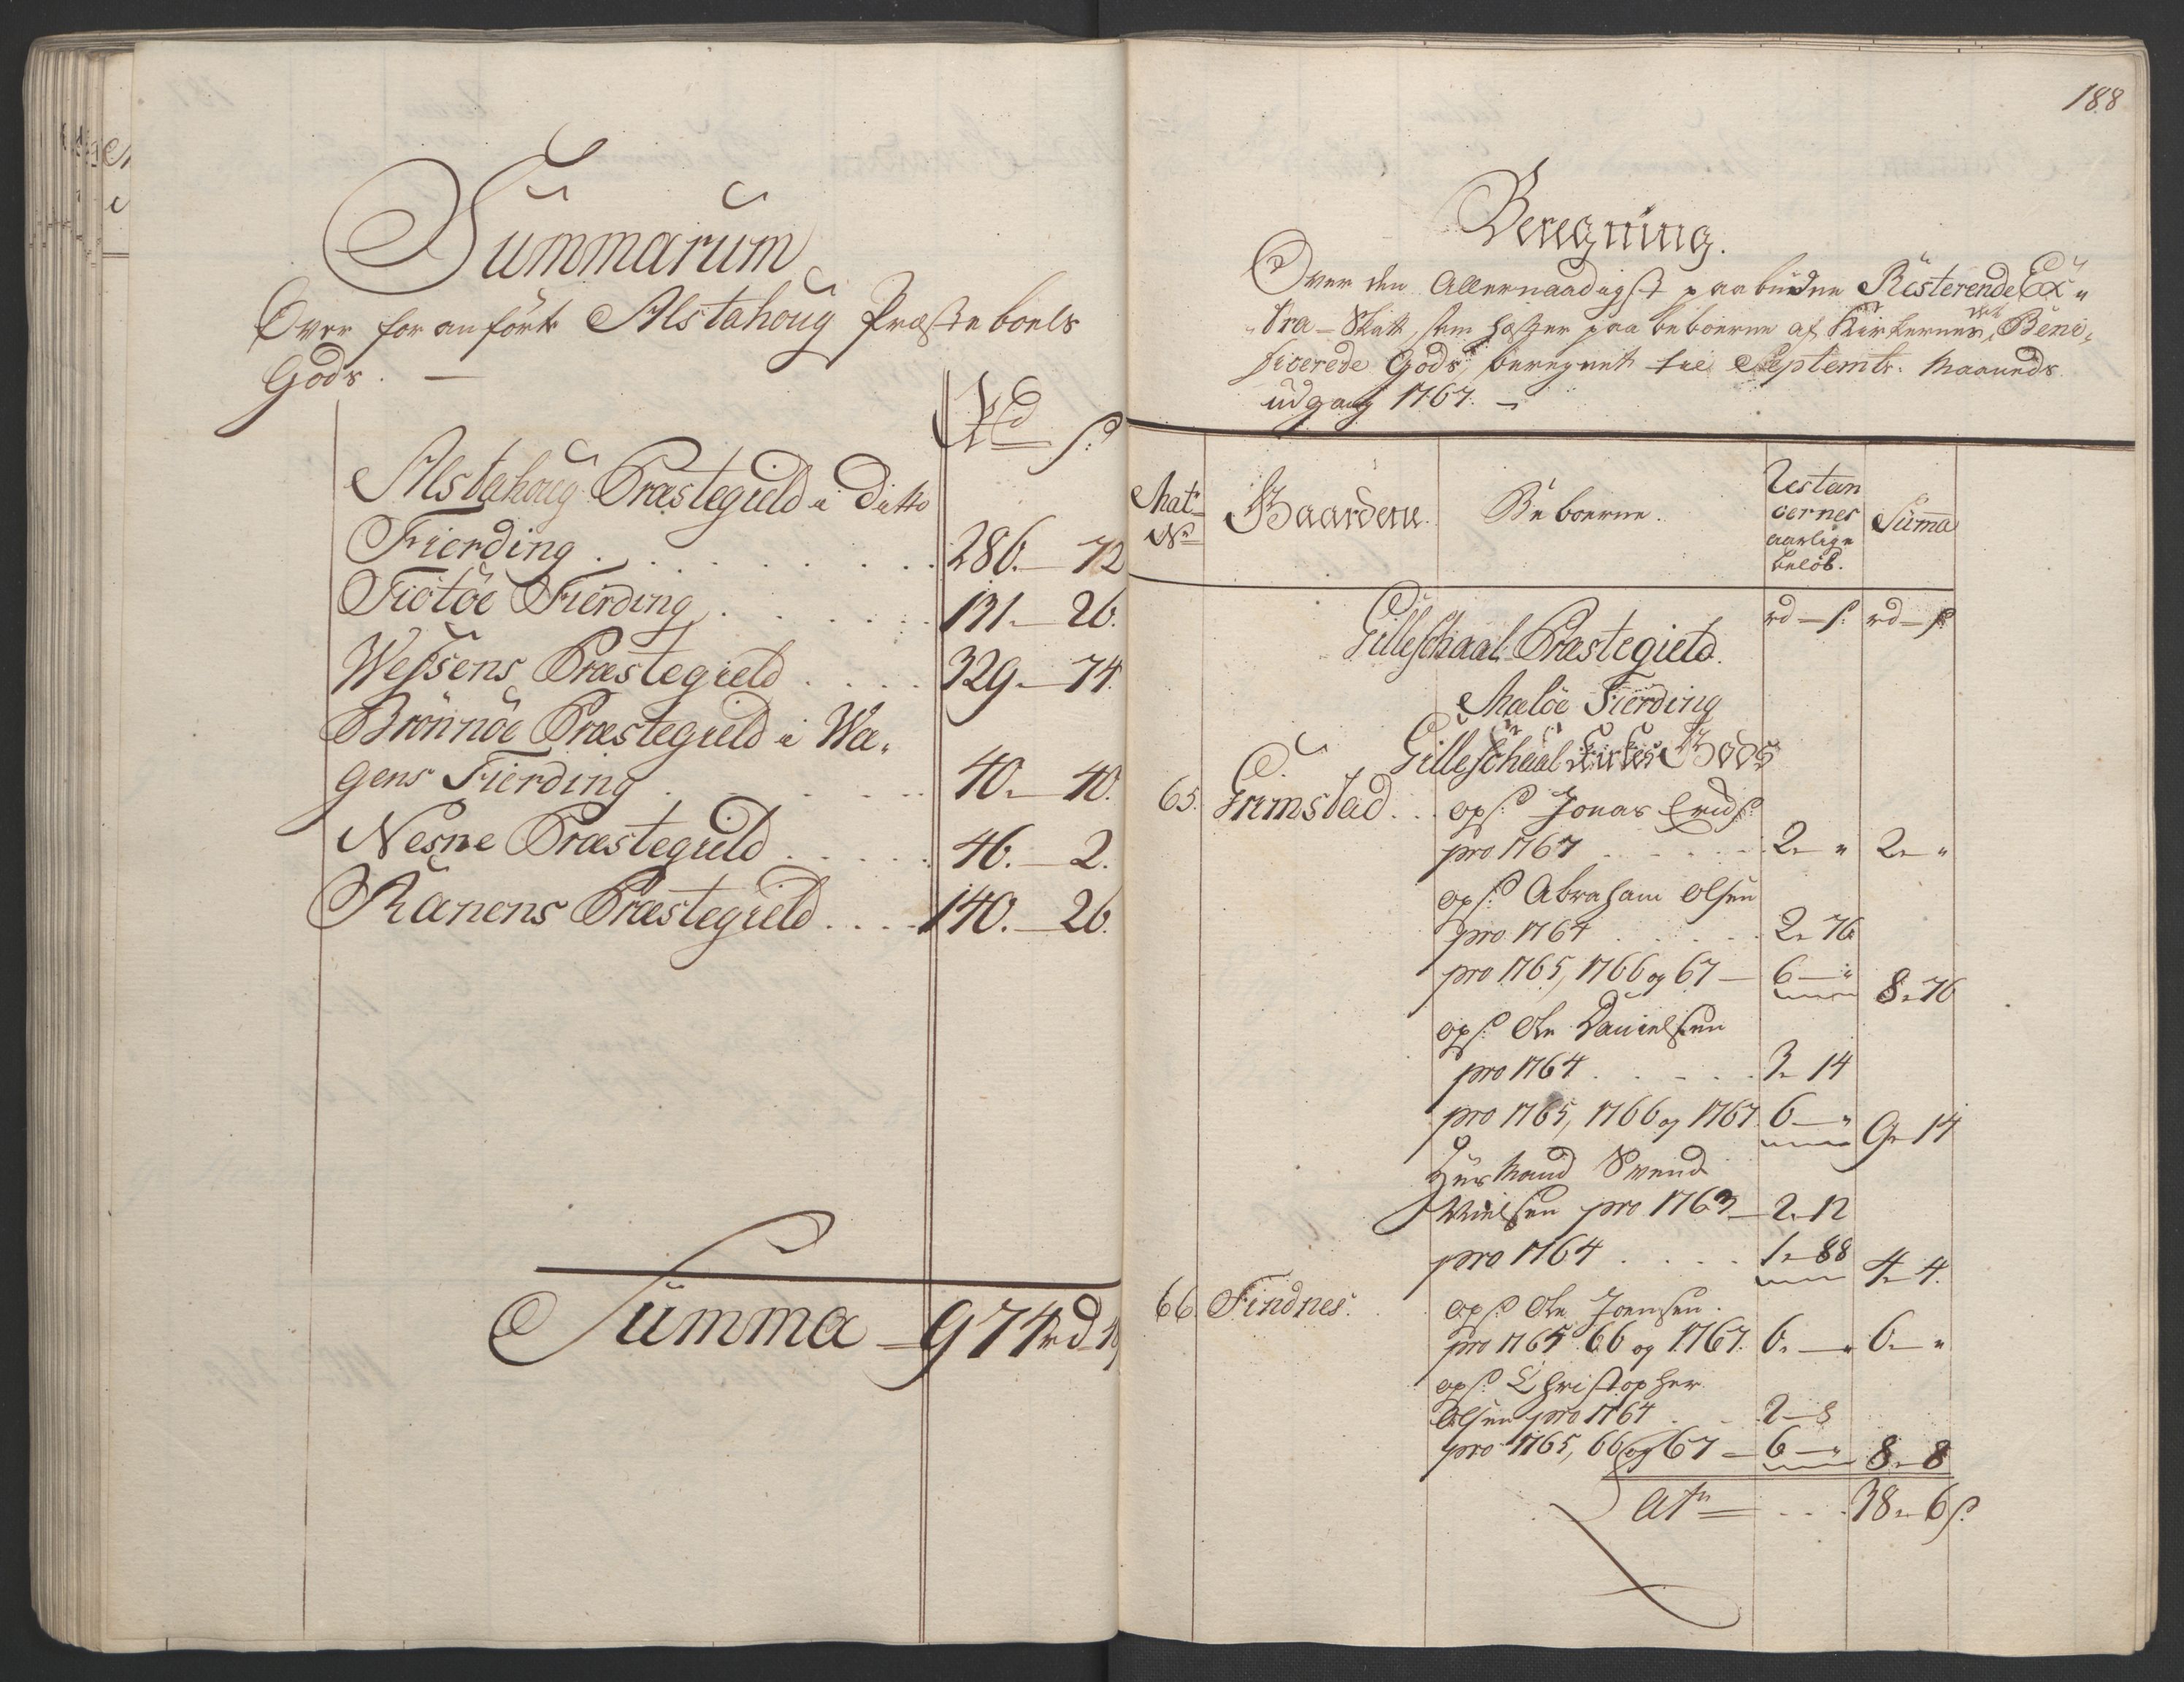 Summarum
Over for anførte Alstahoug Præsteboels
Gods. —
Rd s:
Alstahoug Præstegield i ditto
Fierding . . . . . . . . . 286. — 72
Tiøtøe Fierding . . . . . . 131. — 26.
Wefsens Præstegield . . . . 329. — 74.
Brønnøe Præstegield i Wæ„
gens Fierding . . . . . . 40. — 40.
Nesne Præstegield . . . . . 46. — 2.
Ranens Præstegield . . . . 140. — 26.
Summa — 974 rd
188
Beregning.
Over den Allernaadigst paabudne Resterende Ex„
„tra-Skatt, som hafter paa beboerne af Kirkernes, Bene„
ficerede Gods, beregnet til Septembr. Maaneds
udgang 1767. —
Mat:
No
Gaardene.
Beboerne.
Restan
cernes
aarlige
beløb.
Suma
rd — s: rd — s
Gilleschaal Præstegield.
Meløe Fierding
Gilleschaal Kirkes Gods
65. . . ops: Jonas Erichs:
pro 1767 . . . . . 2 — „ 2 — „
ops: Abraham Olsen
pro 1764 . . . . . 2 — 76
pro 1765, 1766 og 67 — 6 — „ 8 — 76
ops: Ole Danielsen
pro 1764 . . . . . 3 — 14
pro 1765, 1766 og 1767. 6 — „ 9 — 14
Huusmand Svend
Nielsen pro 1763 — 2 — 12
pro 1764 . . . . 1 — 88 4 — 4.
66. Findnes. . ops: Ole Joensen.
pro 1765. 66 og 1767. 6. — „ 6. — „
ops: Christopher
Olsen pro 1764 . . 2 — 8
pro 1765, 66 og 67 — 6 — „ 8 — 8
at — . . . 38 — 6 s.